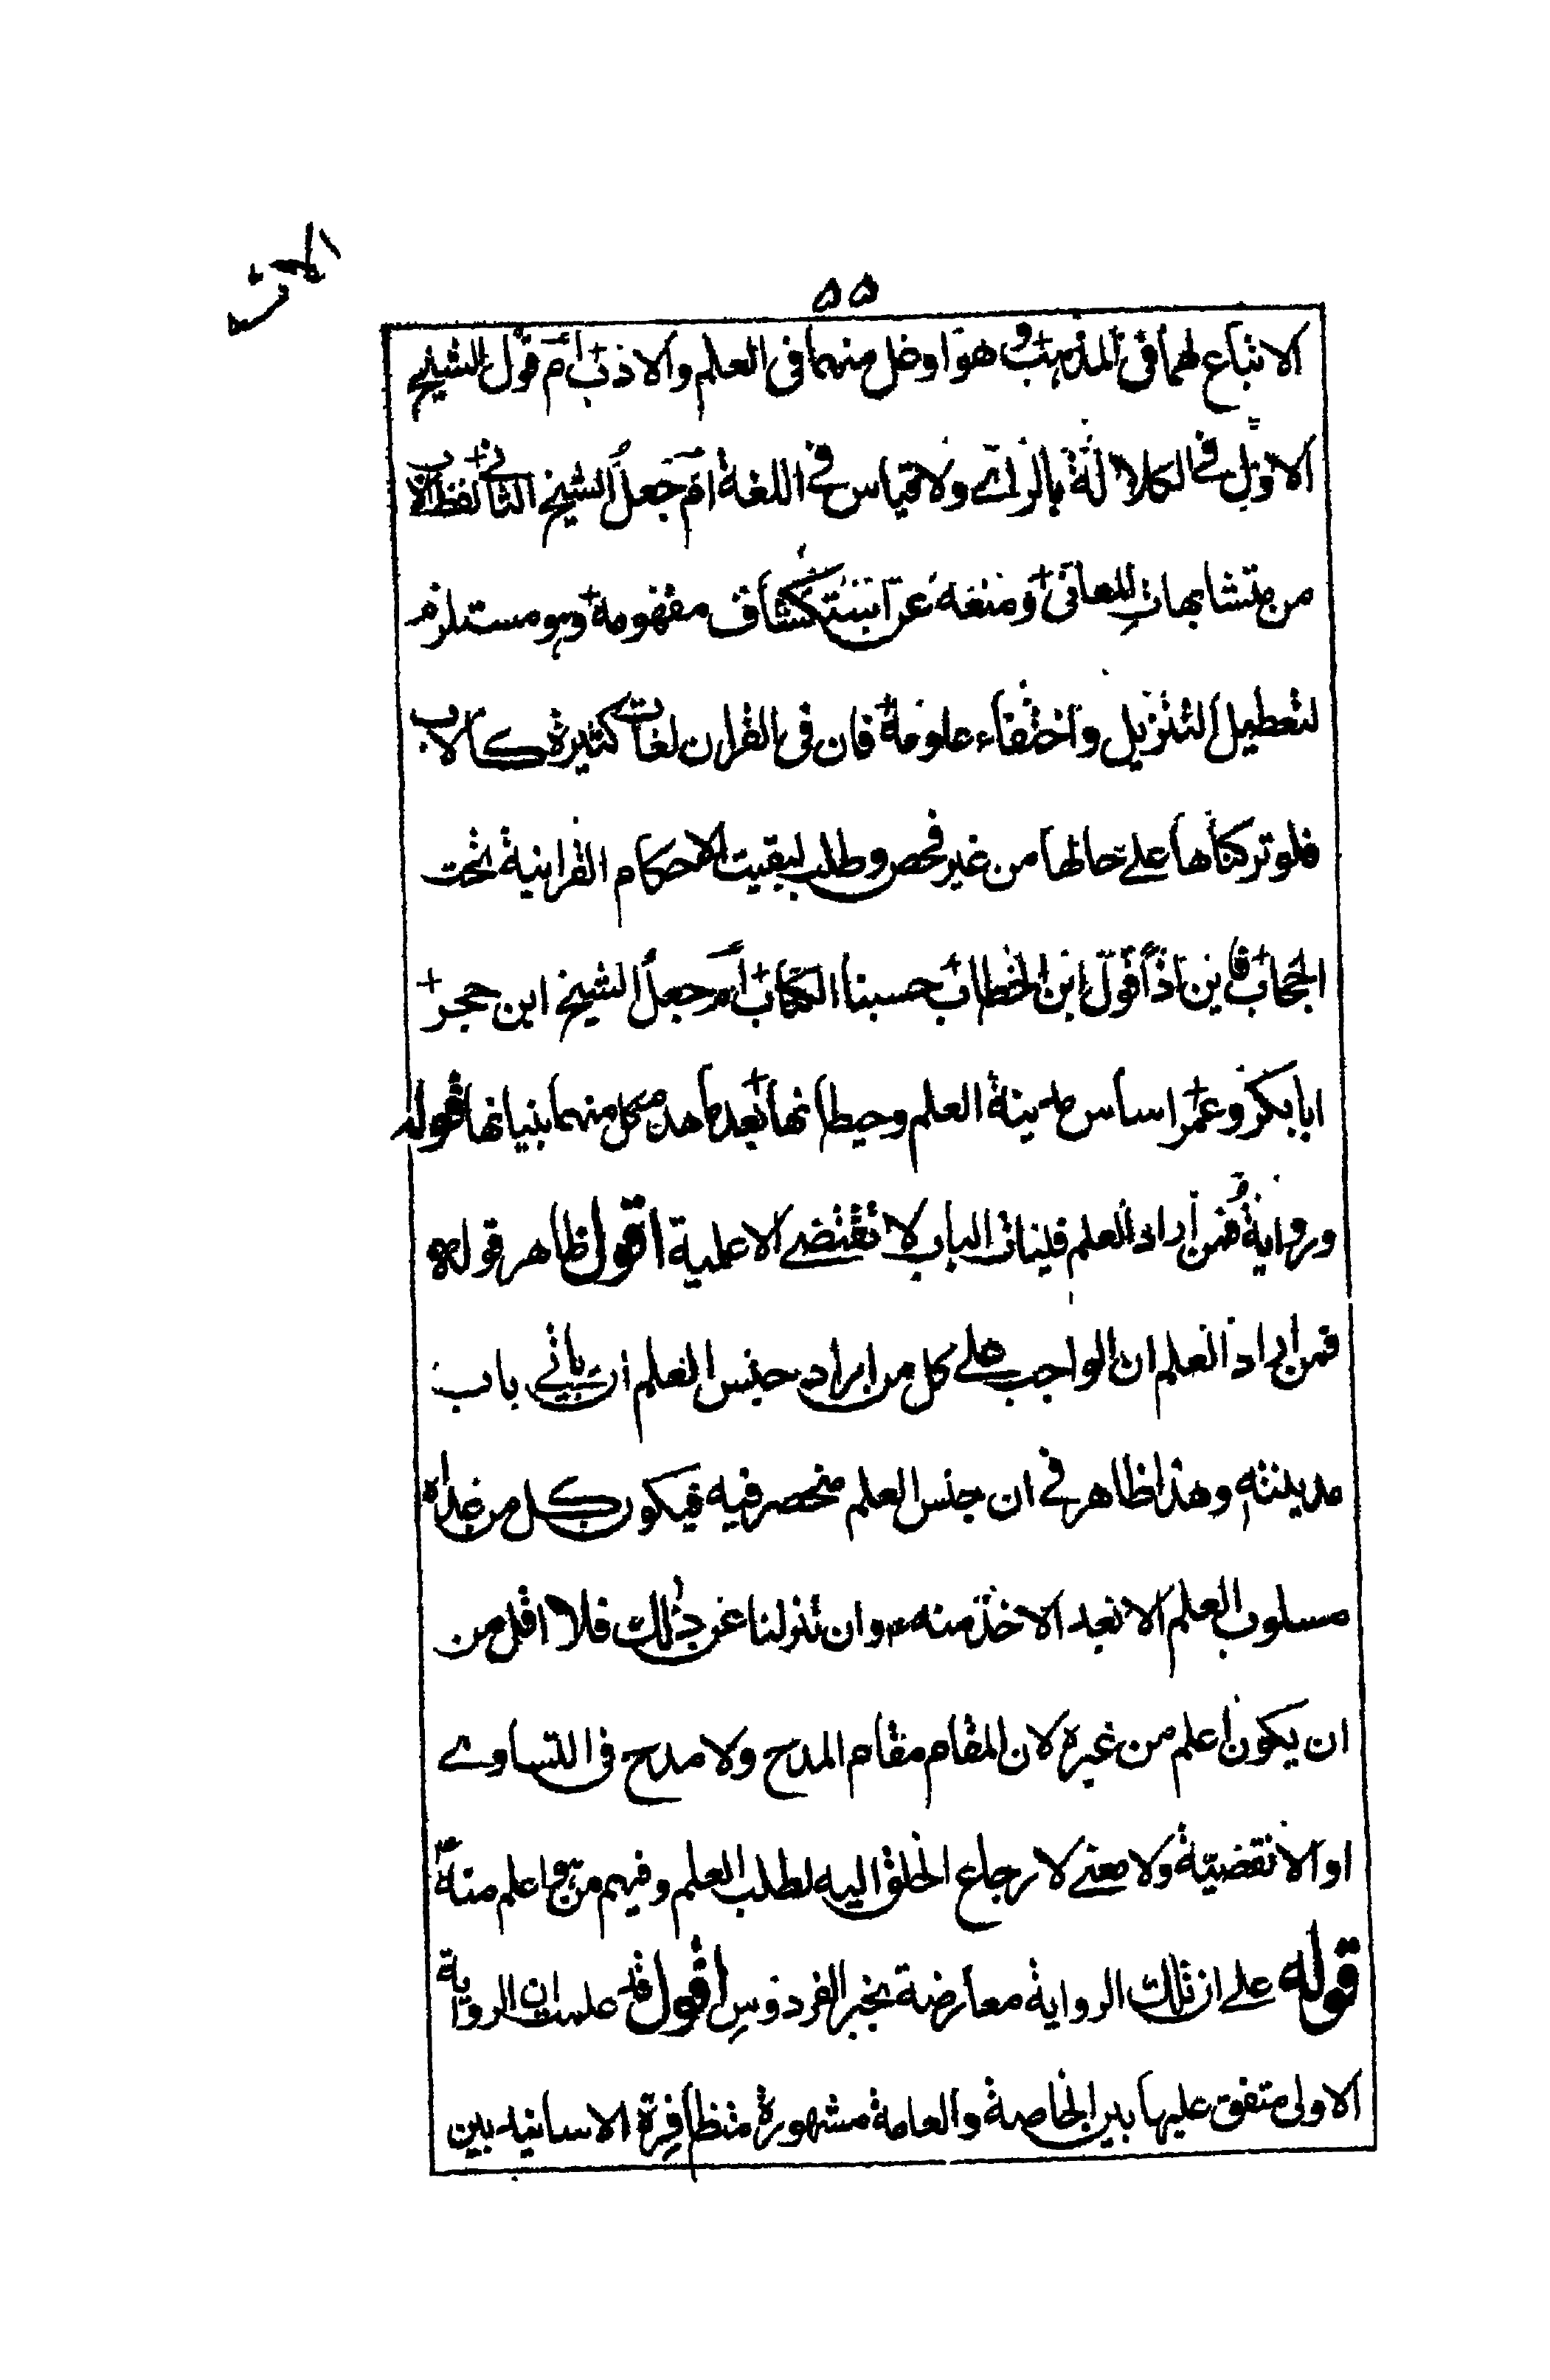 ۵۵
الاتباع لهما فى المذهب و هو اوضل منهما فى العلم والاذب ام قول الشيخ
الاول في الكلالة بالرأي ولا قياس في اللغة ام جعل الشيخ الثاني لفظ الاب
من متشابهات المعانى ومنعه عن استكشاف مفهومه وهو مستلزم
لتعطيل التنزيل واختفاء علومه فان فى القران لغات كثيرة كالاب
فلو تركناها على حالها من غير فحص وطلب لبقيت الاحكام القرانية تحت
الحجاب فاين اذا قول ابن الخطاب حسبنا الكتاب ام جعل الشيخ ابن حجر
ابا بكر وعمر اساس مدينة العلم وحيطانها بعد ما هدم كل منهما بنيانها قوله
ورواية فمن اراد العلم فليات الباب لا تقتضي الاعلمية اقول ظاهر قوله
فمن اراد العلم ان الواجب على كل من اراد جنس العلم ان ياتي باب
مدينته وهذا ظاهر في ان جنس العلم منحصر فيه فيكون كل من عداه
مسلوب العلم الا بعد الاخذ منه وان تنزلنا عن ذلك فلا اقل من
ان يكون اعلم من غيره لان المقام مقام المدح ولا مدح فى التساوي
او الانقضية ولا معنى لارجاع الخلق اليه لطلب العلم وفيهم من هو اعلم منه
قوله على ان تلك الرواية معارضة بخبر الفردوس اقول قد علمت ان الرواية
الاولى متفق عليها بين الخاصة والعامة مشهورة متظافرة الاسانيد بين